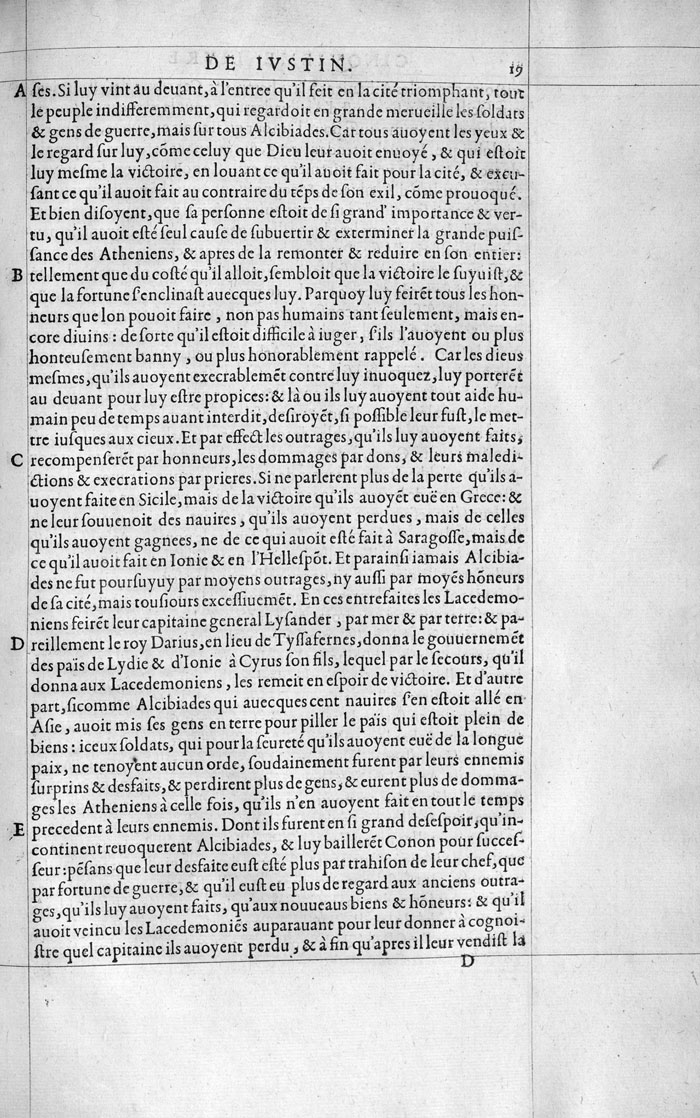 DE IVSTIN. 19
A ſes. Si luy vint au deuant, à l'entree qu'il feit en la cité triomphant, tout
le peuple indifferemment, qui regardoit en grande merueille les ſoldats
& gens de guerre, mais ſur tous Alcibiades. Car tous auoyent les yeux &
le regard ſur luy, cõme celuy que Dieu leur auoit enuoyé, & qui eſtoit
luy meſme la victoire, en louant ce qu'il auoit fait pour la cité, & excu-
ſant ce qu'il auoit fait au contraire du tẽps de ſon exil, cõme prouoqué.
Et bien diſoyent, que ſa perſonne eſtoit de ſi grand' importance & ver-
tu, qu'il auoit eſté ſeul cauſe de ſubuertir & exterminer la grande puiſ-
ſance des Atheniens, & apres de la remonter & reduire en ſon entier:
B tellement que du coſté qu'il alloit, ſembloit que la victoire le ſuyuiſt, &
que la fortune s'enclinaſt auecques luy. Parquoy luy feirẽt tous les hon-
neurs que lon pouoit faire, non pas humains tant ſeulement, mais en-
core diuins: de ſorte qu'il eſtoit difficile à iuger, s'ils l'auoyent ou plus
honteuſement banny, ou plus honorablement rappelé. Car les dieus
meſmes, qu'ils auoyent execrablemẽt contre luy inuoquez, luy porterẽt
au deuant pour luy eſtre propices: & là ou ils luy auoyent tout aide hu-
main peu de temps auant interdit, deſiroyẽt, ſi poſſible leur fuſt, le met-
tre iuſques aux cieux. Et par effect les outrages, qu'ils luy auoyent faits,
C recompenſerẽt par honneurs, les dommages par dons, & leurs maledi-
ctions & execrations par prieres. Si ne parlerent plus de la perte qu'ils a-
uoyent faite en Sicile, mais de la victoire qu'ils auoyẽt euë en Grece: &
ne leur ſouuenoit des nauires, qu'ils auoyent perdues, mais de celles
qu'ils auoyent gagnees, ne de ce qui auoit eſté fait à Saragoſſe, mais de
ce qu'il auoit fait en Ionie & en l'Helleſpõt. Et parainſi iamais Alcibia-
des ne fut pourſuyuy par moyens outrages, ny auſſi par moyẽs hõneurs
de ſa cité, mais touſiours exceſſiuemẽt. En ces entrefaites les Lacedemo-
niens feirẽt leur capitaine general Lyſander, par mer & par terre: & pa-
D reillement le roy Darius, en lieu de Tyſſafernes, donna le gouuernemẽt
des païs de Lydie & d'Ionie à Cyrus ſon fils, lequel par le ſecours, qu'il
donna aux Lacedemoniens, les remeit en eſpoir de victoire. Et d'autre
part, ſicomme Alcibiades qui auecques cent nauires s'en eſtoit allé en
Aſie, auoit mis ſes gens en terre pour piller le païs qui eſtoit plein de
biens: iceux ſoldats, qui pour la ſeureté qu'ils auoyent euë de la longue
paix, ne tenoyent aucun orde, ſoudainement furent par leurs ennemis
ſurprins & desfaits, & perdirent plus de gens, & eurent plus de domma-
ges les Atheniens à celle fois, qu'ils n'en auoyent fait en tout le temps
E precedent à leurs ennemis. Dont ils furent en ſi grand deſeſpoir, qu'in-
continent reuoquerent Alcibiades, & luy baillerẽt Conon pour ſucceſ-
ſeur: pẽſans que leur desfaite euſt eſté plus par trahiſon de leur chef, que
par fortune de guerre, & qu'il euſt eu plus de regard aux anciens outra-
ges, qu'ils luy auoyent faits, qu'aux nouueaus biens & hõneurs: & qu'il
auoit veincu les Lacedemoniẽs auparauant pour leur donner à cognoi-
ſtre quel capitaine ils auoyent perdu, & à fin qu'apres il leur vendiſt la
D